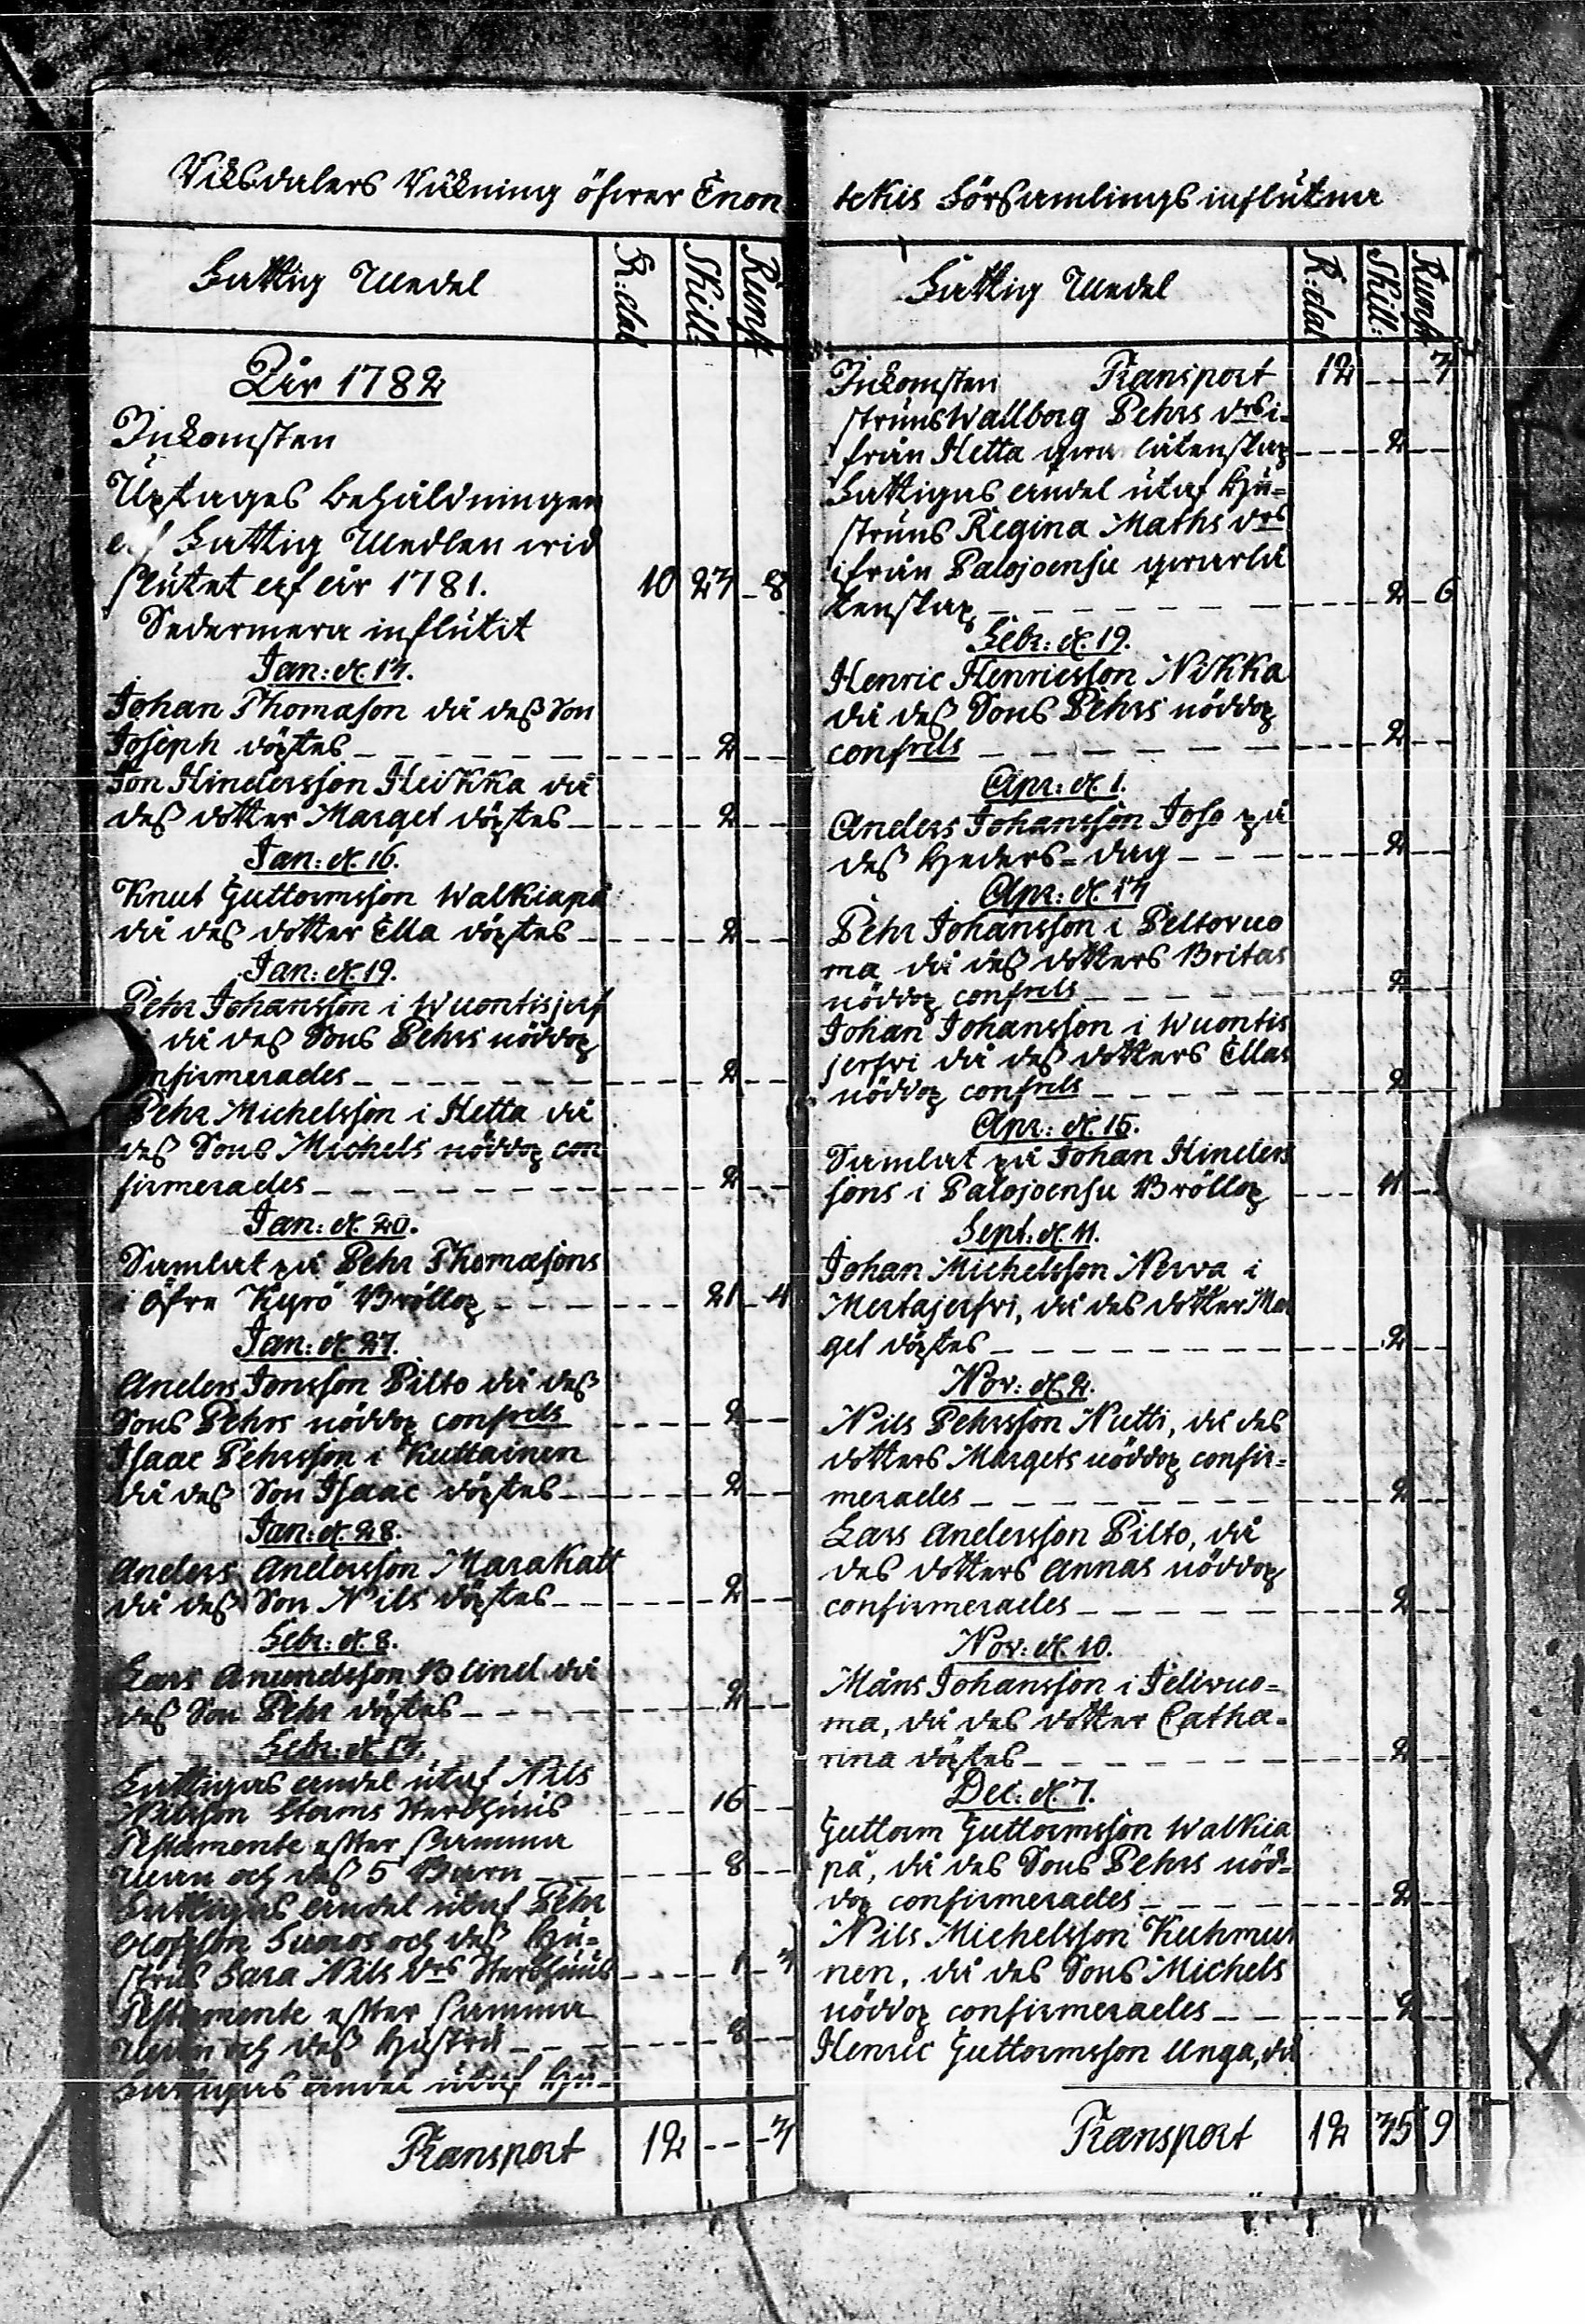 Riksdalers Räkning öfwer Enon
Fattig Medel R:dal Skill: Runst
År 1782
Inkomsten
Uptages behåldningen
af Fattig Medlen wid
slutet af år 1781. 10 23 8
Sedermera influtit
Jan: d. 13.
Johan Thomason då deß Son
Joseph döptes 2
Jon Hindersson Heikka då
deß dotter Marget döptes 2
Jan: d. 16.
Knut Guttormsson Walkiapä
då des dotter Ella döptes 2
Jan: d. 19.
Pehr Johansson i Wuontisjerf
då deß Sons Pehrs nöddop
confirmerades 2
Pehr Michelsson i Hetta då
deß Sons Michels nöddop con
firmerades 2
Jan: d. 20.
Samlat på Pehr Thomæsons
i öfre Kyrö Bröllop 21 4
Jan: d. 27.
Anders Jonsson Pilto då deß
Sons Pehrs nöddop confrds 2
Isaac Pehrsson i Kuttainen
då deß Son Isaac döptes 2
Jan: d. 28.
Anders Andersson Marakatt
då deß Son Nils döptes 2
Febr: d. 8.
Lars Amundsson Blind då
deß Son Pehr döptes 2
Febr: d. 13.
Fattigas andel utaf Nils
Nilsson Storms Sterbhus 16
Testamente efter samma
man och deß 5 Barn 8
Fattigas andel utaf Pehr
Olofsson och deß Hu-
strus Sara Nils drs Sterbhus 1 3
Testamente efter samma
man och deß Hustru 8
Fattigas andel utaf Hu-
Transport 12 -- 3
tekis Församlings influtna
Fattig Medel R:dal Skill: Runst
Inkomsten Transport 12 -- 3
struns Wallborg Pehrs drs i-
från Hetta qwarlåtenskap 2
Fattigas andel utaf Hu-
struns Regina Maths drs
ifrån Palojoensu qwarlå
tenskap 2 6
Febr: d. 19.
Henric Henricsson Nikka
då deß Sons Pehrs nöddop
confrds 2
Apr: d. 1.
Anders Johansson Joso på
deß Heders-dag 2
Apr: d. 13
Pehr Johansson i Peltovuo
ma då deß dotters Britas
nöddop confrds 2
Johan Johansson i Wuontis
jerfvi då deß dotters Ellas
nöddop confrds 2
Apr: d. 15.
Samlat på Johan Hinders
sons i Palojoensu Bröllop 11
Sept. d. 11.
Johan Michelsson Nerva i
Mertajerfvi, då des dotter Mar
get döptes 2
Nov: d. 2.
Nils Pehrsson Nutti, då des
dotters Margets nöddop confir-
merades 2
Lars Andersson Pilto, då
des dotters Annas nöddop
confirmerades 2
Nov: d. 10.
Måns Johansson i Jelivuo-
ma, då des dotter Catha-
rina döptes 2
Dec: d. 7.
Guttorm Guttormsson Walkia
pä, då des Sons Pehrs nöd-
dop confirmerades 2
Nils Michelsson Kuhmu
nen, då des Sons Michels
nöddop confirmerades 2
Henric Guttormsson Unga, då
Transport 12 35 9